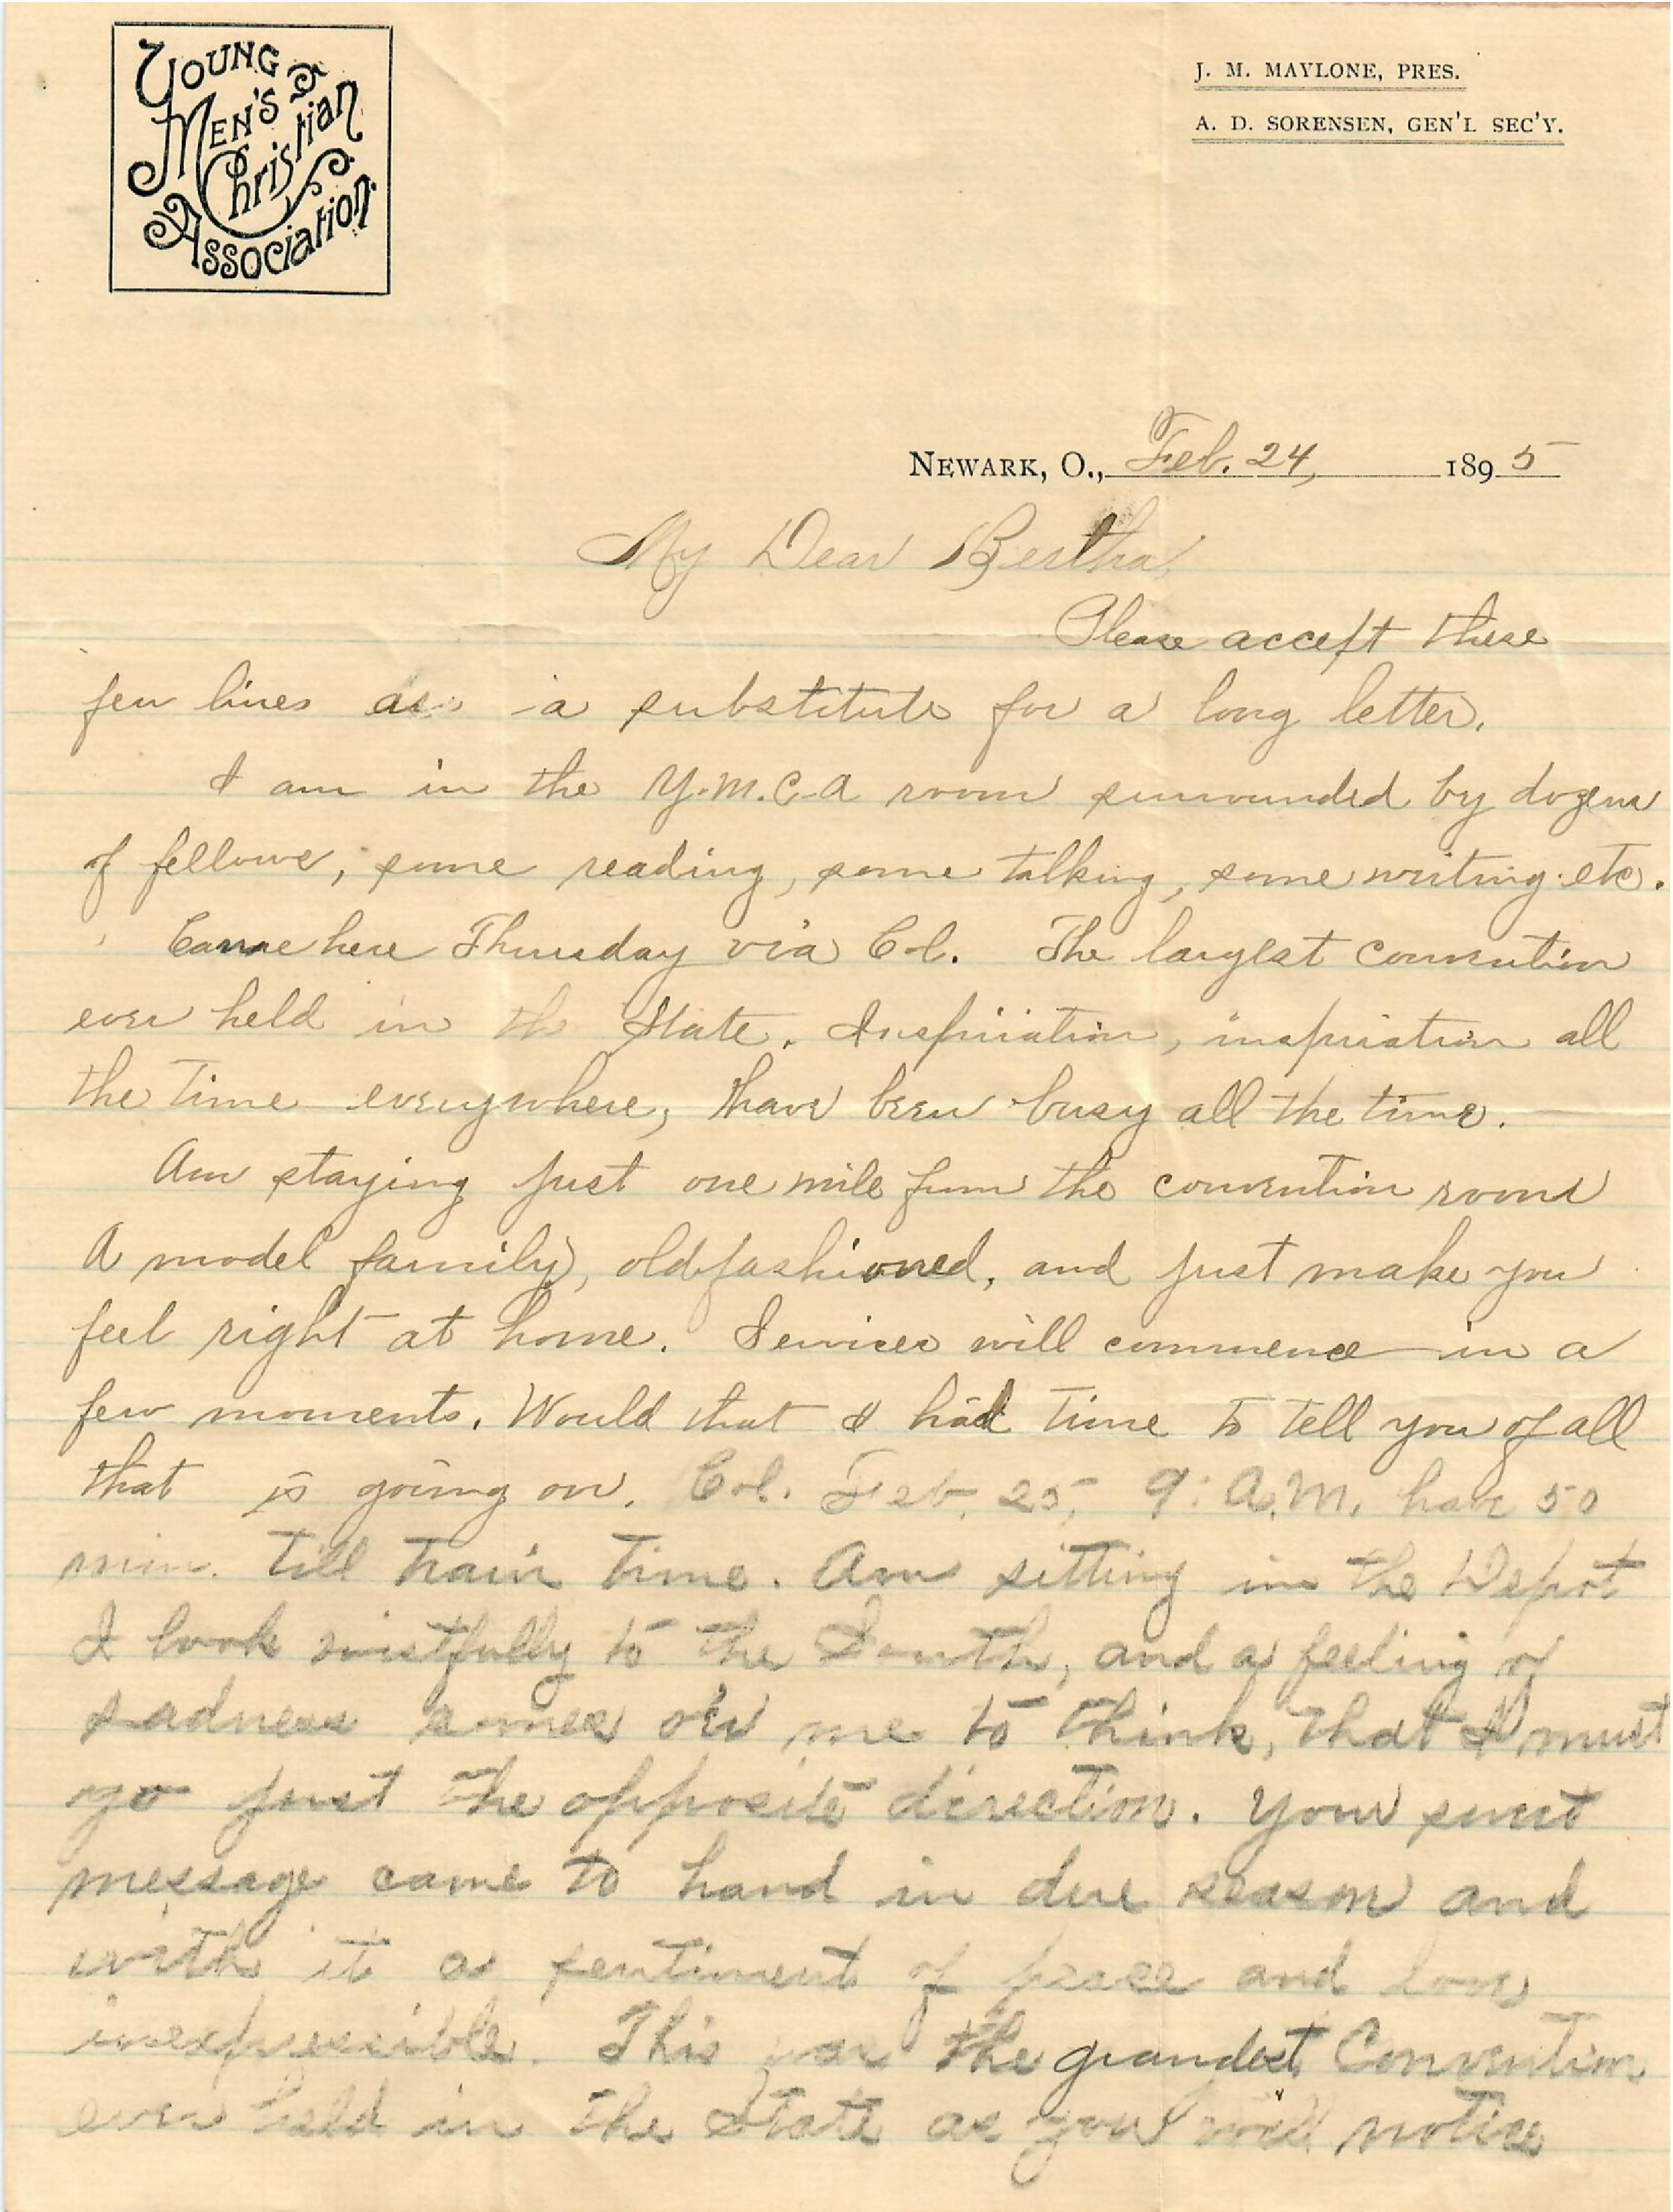 Young
Men's
Christian
Association
J. M. MAYLONE, PRES.
A. D. SORENSEN, GEN'L SEC'Y.
NEWARK, O., Feb. 24, 1895
My Dear Bertha,
Please accept these
few lines as a substitute for a long letter.
I am in the Y.M.C.A room surrounded by dozens
of fellows, some reading, some talking, some writing etc.
Came here Thursday via Col. The largest convention
ever held in the State. Inspiration, inspiration all
the time everywhere, have been busy all the time.
Am staying just one mile from the convention room
A model family, oldfashioned, and just make you
feel right at home. Services will commence in a
few moments. Would that I had time to tell you of all
that is going on. Col. Feb. 25, 9: A.M. have 50
min. till train time. Am sitting in the Depot
I look wistfully to the South, and a feeling of
sadness comes o'er me to think, that I must
go just the opposite direction. Your sweet
message came to hand in due season and
with it a sentiment of peace and love
inexpressible. This was the grandest Convention
ever held in the State as you will notice